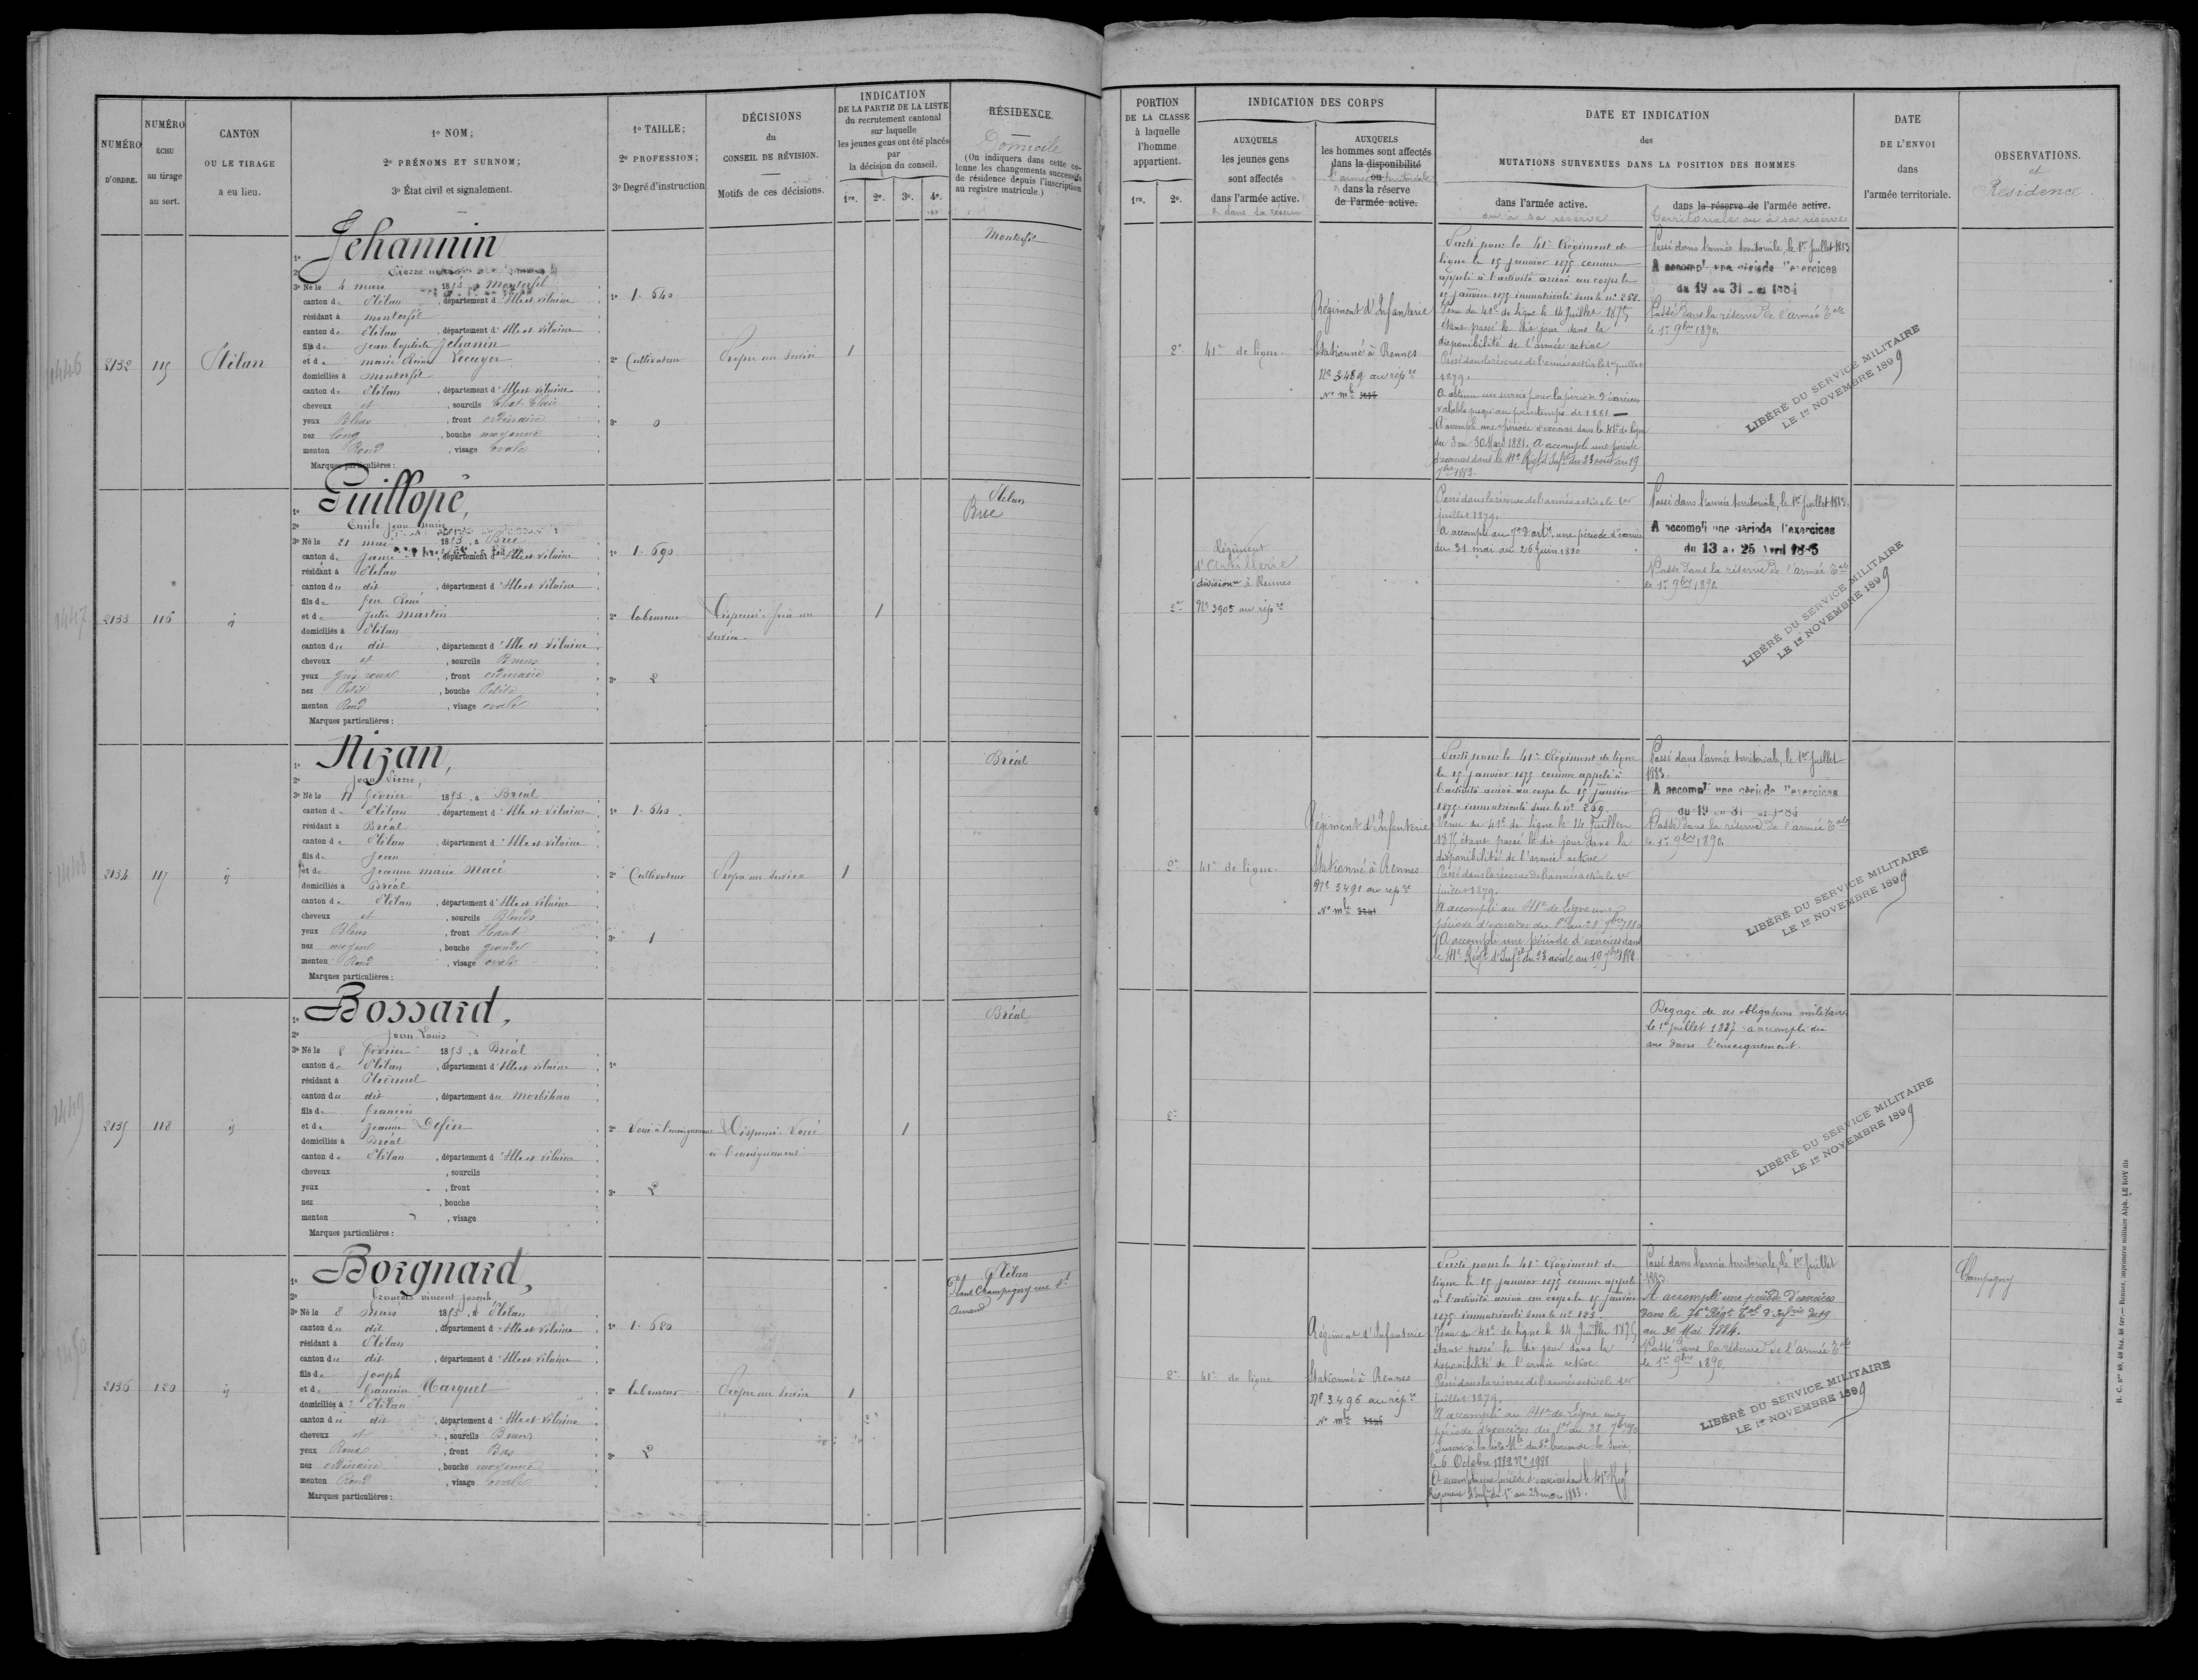 NUMÉRO
D'ORDRE.
NUMÉRO
ÉCHU
au tirage
au sort.
CANTON
OU LE TIRAGE
a eu lieu.
1º NOM;
2º PRÉNOMS ET SURNOM;
3º État civil et signalement.
1º TAILLE;
2º PROFESSION;
3º Degré d'instruction
DÉCISIONS
du
CONSEIL DE RÉVISION.
Motifs de ces décisions.
INDICATION
DE LA PARTIE DE LA LISTE
du recrutement cantonal
sur laquelle
les jeunes gens ont été placés
par
la décision du conseil.
1re. 2e. 3e. 4e.
RÉSIDENCE.
Domicile
(On indiquera dans cette co-
lonne les changements successifs
de résidence depuis l'inscription
au registre matricule.)
1446
2132
115
Plélan
1º Jehannin
2º
3º Né le 4 mars 1853, à Monterfil
canton de Plélan, département d'Ille et Vilaine
résidant à Monterfil
canton de Plélan, département d'Ille et Vilaine
fils de Jean Baptiste Jehanin
et de Marie Lecuyer
domiciliés à Monterfil
canton de Plélan, département d'Ille et Vilaine
cheveux et, sourcils Chat. Clair
yeux Bleus, front ordinaire
nez long, bouche moyenne
menton Rond, visage ovale
Marques particulières:
1º 1.640
2º Cultivateur
3º 0
Propre au service
1
Monterfil
1447
2133
116
id
1º Guillopé,
2º Emile Jean Marie
3º Né le 21 mai 1853, à Brée
canton de Janzé, département d'Ille et Vilaine
résidant à Plélan
canton du dit, département d'Ille et Vilaine
fils de feu René
et de Julie Martin
domiciliés à Plélan
canton du dit, département d'Ille et Vilaine
cheveux et, sourcils Bruns
yeux gris roux, front ordinaire
nez Petit, bouche Petite
menton Rond, visage ovale
Marques particulières:
1º 1.690
2º laboureur
3º 2
Dispensé frère au
service
1
Plélan
Brie
1448
2134
117
id
1º Nizan,
2º Jean Pierre,
3º Né le 11 février 1853, à Bréal
canton de Plélan, département d'Ille et Vilaine
résidant à Bréal
canton de Plélan, département d'Ille et Vilaine
fils de Jean
et de Jeanne Marie Macé
domiciliés à Bréal
canton de Plélan, département d'Ille et Vilaine
cheveux et, sourcils Blonds
yeux Bleus, front Haut
nez moyen, bouche grande
menton Rond, visage ovale
Marques particulières:
1º 1.640
2º Cultivateur
3º 1
Propre au service
1
Bréal
1449
2135
118
id
1º Bossard,
2º Jean Louis
3º Né le 8 février 1853, à Bréal
canton de Plélan, département d'Ille et Vilaine
résidant à Ploërmel
canton du dit, département du Morbihan
fils de François
et de Jeanne
domiciliés à Bréal
canton de Plélan, département d'Ille et Vilaine
cheveux, sourcils
yeux, front
nez, bouche
menton, visage
Marques particulières:
1º
2º Voué à l'enseignement
3º 2
Dispensé Voué
à l'enseignement
1
Bréal
1450
2136
120
id
1º Borgnard,
2º François Vincent Joseph
3º Né le 8 mars 1853, à Plélan
canton du dit, département d'Ille et Vilaine
résidant à Plélan
canton du dit, département d'Ille et Vilaine
fils de Joseph
et de Françoise Marquet
domiciliés à Plélan
canton du dit, département d'Ille et Vilaine
cheveux et, sourcils Bruns
yeux Roux, front Bas
nez ordinaire, bouche moyenne
menton Rond, visage ovale
Marques particulières:
1º 1.680
2º laboureur
3º 2
Propre au service
1
Plélan
Champigny rue St
Amand
PORTION
DE LA CLASSE
à laquelle
l'homme
appartient.
1re. 2e.
INDICATION DES CORPS
AUXQUELS
les jeunes gens
sont affectés
dans l'armée active.
& dans sa réserve
AUXQUELS
les hommes sont affectés
dans la disponibilité
ou
l'armée territoriale
dans la réserve
de l'armée active.
DATE ET INDICATION
des
MUTATIONS SURVENUES DANS LA POSITION DES HOMMES
dans l'armée active.
ou à sa réserve
dans la réserve de l'armée active.
Territoriale ou à sa réserve
DATE
DE L'ENVOI
dans
l'armée territoriale.
OBSERVATIONS.
et
Résidence
2e
41e de ligne
Régiment d'Infanterie
Stationné à Rennes
No 3489 au rép.re
No mle
Parti pour le 41e Régiment de
ligne le 15 janvier 1875 comme
appelé à l'activité arrivé au corps le
15 janvier 1875 immatriculé sous le nº 258.
Venu du 41e de ligne le 14 Juillet 1875
étant passé le dis jour dans la
disponibilité de l'armée active
Passé dans la réserve de l'armée active le 1er juillet
1879.
A obtenu un sursis pour la période d'exercices
valable jusqu'au printemps de 1881
A accompli une période d'exercices dans le 41e de ligne
du 3 au 30 Mars 1881. A accompli une période
d'exercices dans le 41e Régt d'Infie du 23 août au 19
7bre 1882.
Passé dans l'armée territoriale le 1er Juillet 1883
A accompli une période d'exercices
du 19 au 31 mai 1884
Passé dans la réserve de l'armée Tale
le 1er 9bre 1890.
LIBÉRÉ DU SERVICE MILITAIRE
LE 1er NOVEMBRE 1899
2e
Régiment
d'Artillerie
divisionre à Rennes
No 3905 au rép.re
Passé dans la réserve de l'armée active le 1er
juillet 1879.
A accompli au 7e d'artie une période d'exercices
du 31 mai au 26 Juin 1880
Passé dans l'armée territoriale, le 1er Juillet 1883.
A accompli une période d'exercices
du 13 au 25 Avril 1885
Passé dans la réserve de l'armée Tale
le 1er 9bre 1890.
LIBÉRÉ DU SERVICE MILITAIRE
LE 1er NOVEMBRE 1899
2e
41e de ligne
Régiment d'Infanterie
Stationné à Rennes
No 3491 au rép.re
No mle
Parti pour le 41e Régiment de ligne
le 15 janvier 1875 comme appelé à
l'activité arrivé au corps le 15 janvier
1875 immatriculé sous le nº 269
Venu du 41e de ligne le 14 Juillet
1875 étant passé le dis jour dans la
disponibilité de l'armée active
Passé dans la réserve de l'armée active le 1er
juillet 1879.
A accompli au 41e de ligne une
période d'exercices du 1er au 28 7bre 1880
A accompli une période d'exercices dans
le 41e Régt d'Infie du 23 août au 19 7bre 1882.
Passé dans l'armée territoriale, le 1er Juillet
1883.
A accompli une période d'exercices
du 19 au 31 mai 1884
Passé dans la réserve de l'armée Tale
le 1er 9bre 1890.
LIBÉRÉ DU SERVICE MILITAIRE
LE 1er NOVEMBRE 1899
2e
Dégagé de ses obligations militaires
le 1er juillet 1887 a accompli dix
ans dans l'enseignement.
LIBÉRÉ DU SERVICE MILITAIRE
LE 1er NOVEMBRE 1899
2e
41e de ligne
Régiment d'Infanterie
Stationné à Rennes
No 3496 au rép.re
No mle
Parti pour le 41e Régiment de
ligne le 15 janvier 1875 comme appelé
à l'activité arrivé au corps le 15 janvier
1875 immatriculé sous le nº 123
Venu du 41e de ligne le 14 Juillet 1875
étant passé le dis jour dans la
disponibilité de l'armée active
Passé dans la réserve de l'armée active le 1er
juillet 1879.
A accompli au 41e de Ligne une
période d'exercices du 1er au 28 7bre 80
le 6 Octobre 1882 No 1988
A accompli une période d'exercices dans le 41e Régt
Régiment d'Infie du 1er au 28 mars 1883.
Passé dans l'armée territoriale, le 1er Juillet
1883.
A accompli une période d'exercices
dans le 76e Régt Tal d'Infrie du 19
au 30 Mai 1884.
Passé dans la réserve de l'armée Tale
le 1er 9bre 1890.
LIBÉRÉ DU SERVICE MILITAIRE
LE 1er NOVEMBRE 1899
Champigny